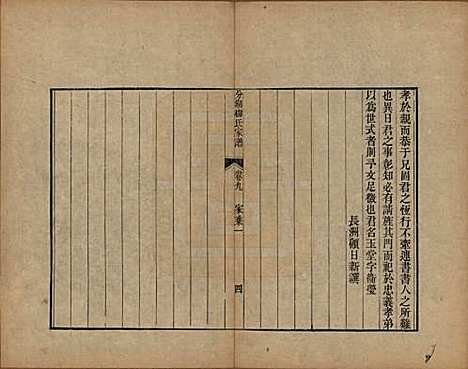 孝於親而恭于兄固君之恆行不牽連書書人之所難
也異日君之事彰知必有請旌其門而祀於忠義孝弟
以為世式者則予文足徵也君名玉堂字
長洲顧日新撰
分湖柳氏家譜
卷九 家乘一
四